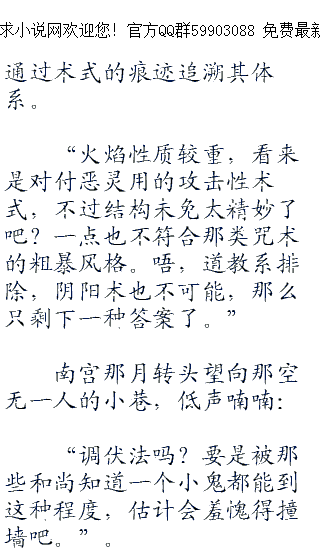 求小说网欢迎您！官方QQ群59903088 免费最新
通过术式的痕迹追溯其体
系。
“火焰性质较重，看来
是对付恶灵用的攻击性术
式，不过结构未免太精妙了
吧？一点也不符合那类咒术
的粗暴风格。唔，道教系排
除，阴阳术也不可能，那么
只剩下一种答案了。”
南宫那月转头望向那空
无一人的小巷，低声喃喃：
“调伏法吗？要是被那
些和尚知道一个小鬼都能到
这种程度，估计会羞愧得撞
墙吧。” 。